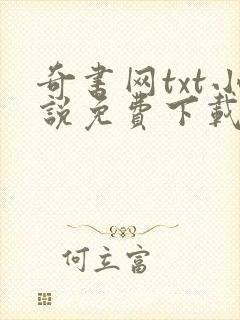 奇書网txt小
說免費下載
何立富